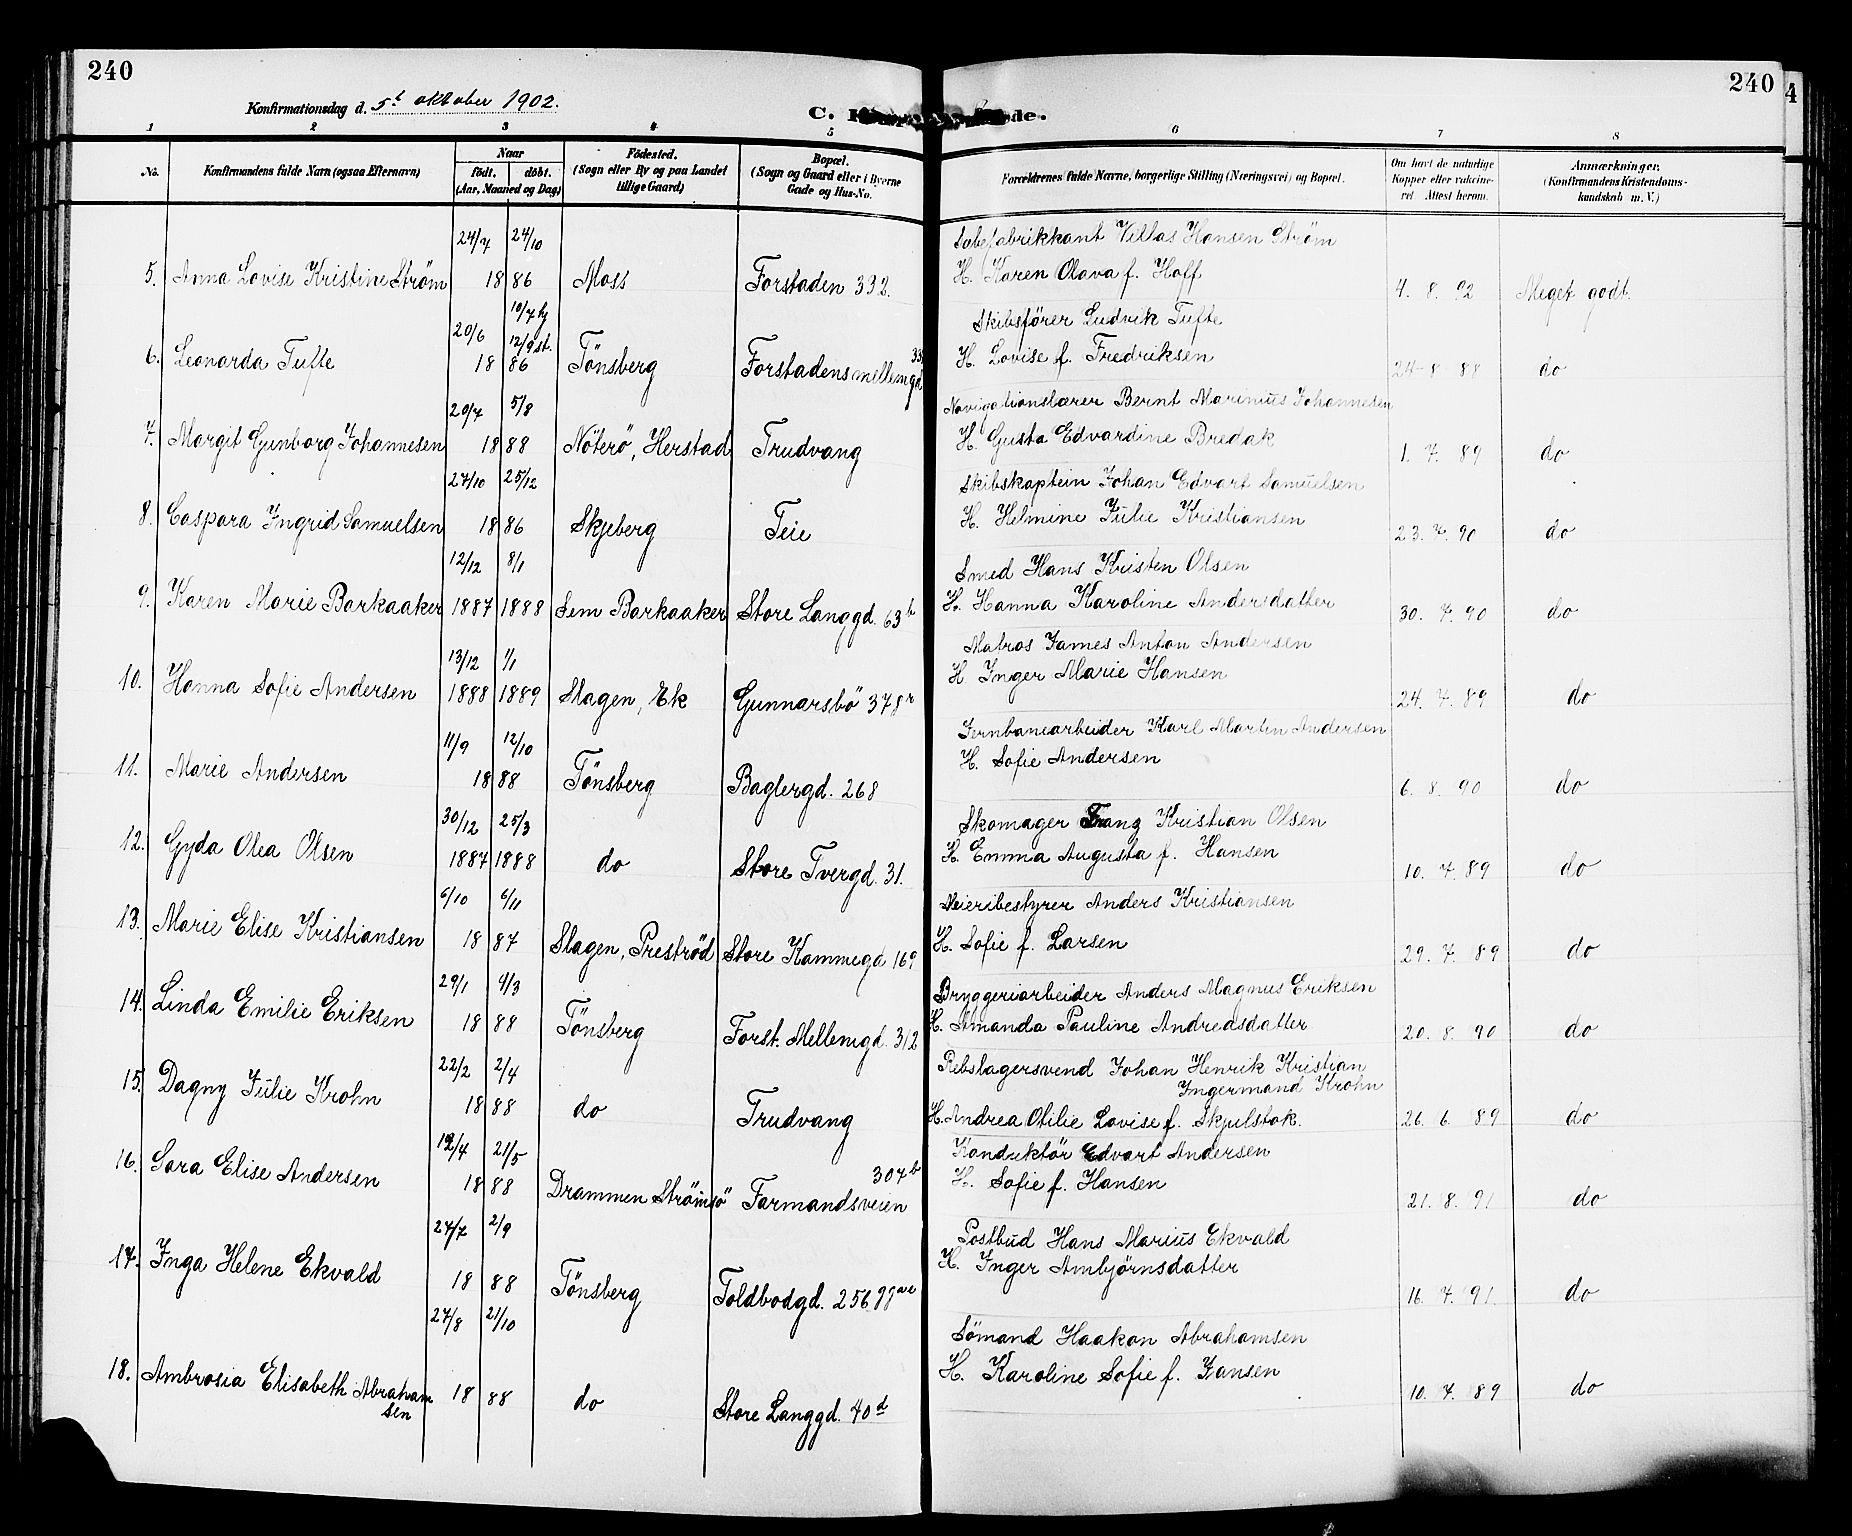 240
240
4
Konfirmationsdag d. 5t oktober 1902.
C.
1 2 3 4 5 6 7 8
No. Konfirmandens fulde Navn (ogsaa Efternavn) Naar Födested. Bopæl. Forældrenes fulde Navne, borgerlige Stilling (Næringsvei) og Bopæl. Om havt de naturlige Anmærkninger,
födt. döbt. (Sogn eller By og paa Landet (Sogn og Gaard eller i Byerne Kopper eller vaccine- (Konfirmandens Kristendoms-
(Aar, Maaned og Dag) tillige Gaard) Gade og Hus-No. ret. Attest herom. kundskab m. V.)
24/7 24/10 Sæbefabrikkant Villas Hansen Ström
5. Anna Lovise Kristine Ström 18 86 Moss Forstaden 332. H. Karen Olava f. Hoff 4. 8. 92 Meget godt.
10/7 hj
20/6 12/9 st. Skibsförer Ludvik Tufte
6. Leonarda Tufte 18 86 Tönsberg Forstadensmellemgd H. Lovise f. Fredriksen 24 8 88 do
20/7 5/8 Navigationslærer Bernt Marinius Johannesen
7. Margit Gunborg Johannesen 18 88 Nöterö, Herstad Trudvang H. Gusta Edvardine Bredak 1. 7. 89 do
27/10 25/12 Skibskaptein Johan Edvart Samuelsen
8. Caspara Ingrid Samuelsen 18 86 Skjeberg Teie H. Helmine Julie Kristiansen 23. 7. 90 do
12/12 8/1 Smed Hans Kristen Olsen
9. Karen Marie Barkaaker 1887 1888 Sem Barkaaker Store Langgd. 63b H. Hanna Karoline Andersdatter 30. 7. 90 do
13/12 1/1 Matros James Anton Andersen
10. Hanna Sofie Andersen 1888 1889 Slagen, Ek Gunnarsbö 378r H Inger Marie Hansen 24. 7. 89 do
11/9 12/10 Jernbanearbeider Karl Martin Andersen
11. Marie Andersen 18 88 Tönsberg Baglergd. 268 H. Sofie Andersen 6. 8. 90 do
30/12 25/3 Skomager Franz Kristian Olsen
12. Gyda Olea Olsen 1887 1888 do Store Tvergd. 31. H. Emma Augusta f. Hansen 10. 7. 89 do
6/10 6/11 Meieribestyrer Anders Kristiansen
13. Marie Elise Kristiansen 18 87 Slagen, Preströd Store Kammegd 169 H. Sofie f. Larsen 29. 7. 89 do
29/1 4/3 Bryggeriarbeider Anders Magnus Eriksen
14. Linda Emilie Eriksen 18 88 Tönsberg Forst. Mellemgd. 312 H. Amanda Pauline Andreasdatter 20. 8. 90 do
22/2 2/4 Rebslagersvend Johan Henrik Kristian
Ingermand Krohn
15. Dagny Julie Krohn 18 88 do Trudvang H. Andrea Otilie Lovise f. Skjulstok. 26. 6. 89 do
19/4 21/5 Konduktör Edvart Andersen
16. Sara Elise Andersen 18 88 Drammen Strömsö Farmandsveien 307b H. Sofie f. Hansen 21. 8. 91 do
27/7 2/9 Postbud Hans Marius Ekvald
17. Inga Helene Ekvald 18 88 Tönsberg Toldbodgd. 256 H. Inger Ambjörnsdatter 16. 7. 91. do
27/8 21/10 Sömand Haakon Abrahamsen
18. Ambrosia Elisabeth Abraham 18 88 do Store Langgd. 40d H. Karoline Sofie f. Jansen 10. 7. 89 do
sen